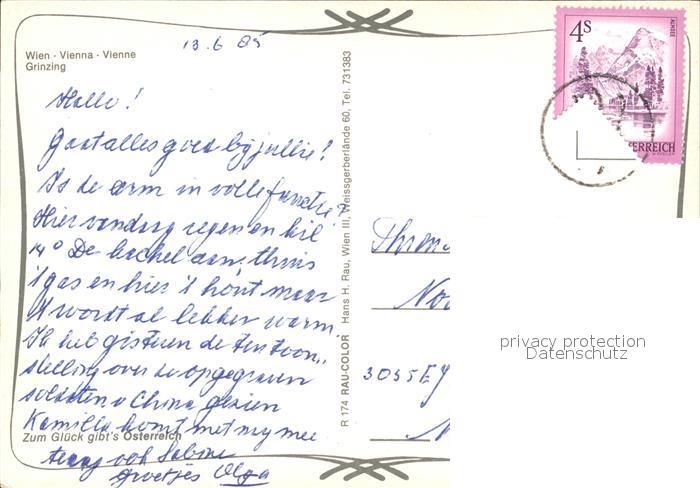 13.6 85
Wien · Vienna · Vienne
Grinzing
4S
ALMSEE
Hallo!
Gaat alles goed bij jullie!
Is de arm in volle functie?
Hier vandaag regen en kil
14° De kachel aan. thuis
't gas en hier 't hout maar
't wordt al lekker warm.
Ik heb gisteren de tentoon„
stelling over de opgegraven
soldaten v China gezien
Kamilla komt met mij mee
terug ook Sabine
groetjes Olga
Zum Glück gibt's Österreich
R 174 RAU-COLOR Hans H. Rau, Wien III, Weissgerberlände 60, Tel. 731383
3035EJ
privacy protection
Datenschutz